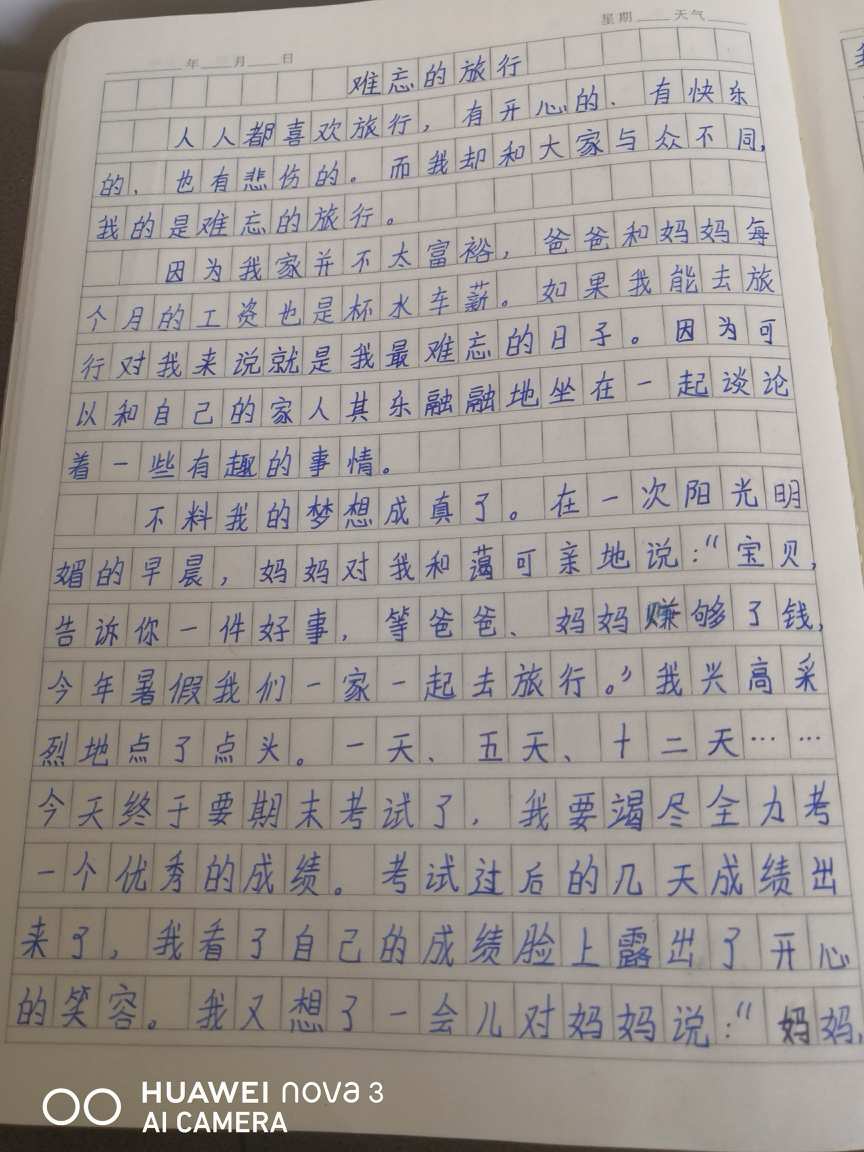 星期 天气
年 月 日
难忘的旅行
人人都喜欢旅行，有开心的、有快乐
的、也有悲伤的。而我却和大家与众不同，
我的是难忘的旅行。
因为我家并不太富裕，爸爸和妈妈每
个月的工资也是杯水车薪。如果我能去旅
行对我来说就是我最难忘的日子。因为可
以和自己的家人其乐融融地坐在一起谈论
着一些有趣的事情。
不料我的梦想成真了。在一次阳光明
媚的早晨，妈妈对我和蔼可亲地说：“宝贝，
告诉你一件好事，等爸爸、妈妈赚够了钱，
今年暑假我们一家一起去旅行。”我兴高采
烈地点了点头。一天、五天、十二天……
今天终于要期末考试了，我要竭尽全力考
一个优秀的成绩。考试过后的几天成绩出
来了，我看了自己的成绩脸上露出了开心
的笑容。我又想了一会儿对妈妈说：“妈妈，
HUAWEI nova 3
AI CAMERA